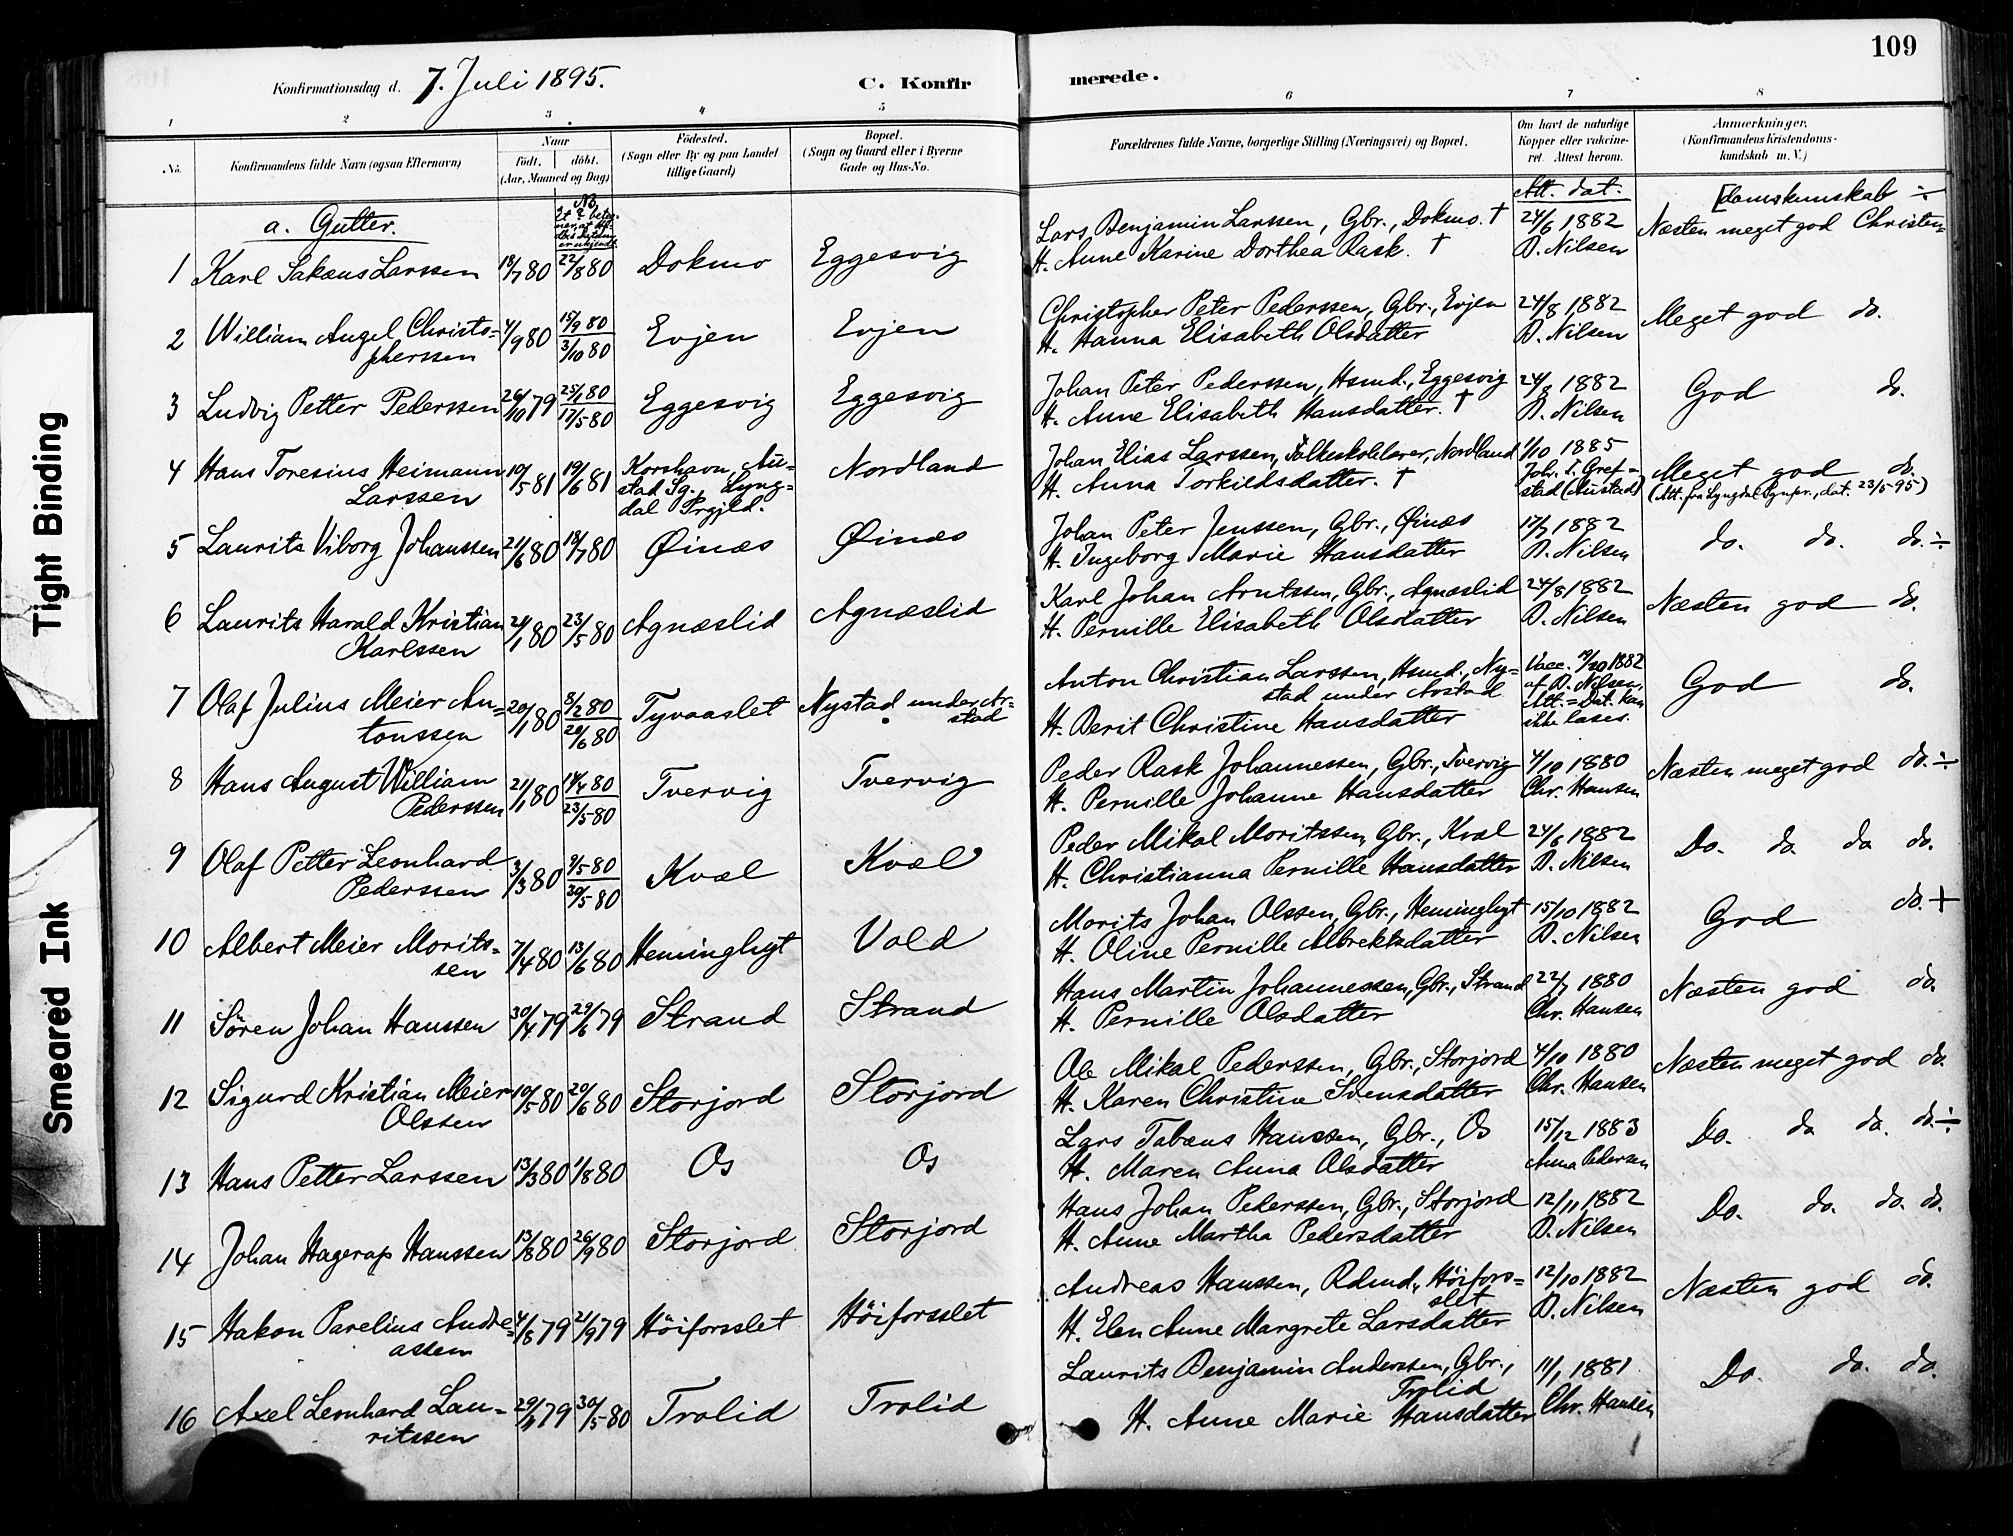 109
Konfirmationsdag d. 7. Juli 1895.
C. Konfirmerede.
1 2 3 4 5 6 7 8
No.
Konfirmandens fulde Navn (ogsaa Efternavn)
Naar
født. døbt.
(Aar, Maaned og Dag)
Födested.
(Sogn eller By og paa Landet
tillige Gaard)
Bopæl.
(Sogn og Gaard eller i Byerne
Gade og Hus-No.
Forældrenes fulde Navne, borgerlige Stilling (Næringsvei) og Bopæl.
Om havt de naturlige
Kopper eller vakcine-
ret. Attest herom.
Anmærkninger.
(Konfirmandens Kristendoms-
kundskab m. V.)
a. Gutter.
Att. dat.
1 Karl Sakæus Larssen 18/7 80 22/8 80 Dokmo Eggesvig
Lars Benjamin Larssen, Gbr., Dokmo. †
H. Anne Karine Dorthea Rask. †
24/6 1882
D. Nilsen
[domskunskab ÷
Næsten meget god Christen=
2 William Angel Christo-
pherssen 4/9 80 15/9 80 3/10 80 Evjen Evjen
Christopher Peter Pederssen, Gbr., Evjen
H. Hanna Elisabeth Olsdatter
24/8 1882
D. Nilsen
Meget god do.
3 Ludvig Petter Pederssen 26/10 79 25/1 80 17/5 80 Eggesvig Eggesvig
Johan Peter Pederssen, Hsmd., Eggesvig
H. Anne Elisabeth Hansdatter. †
24/8 1882
D. Nilsen
God do.
4 Hans Toresius Heimann
Larssen 10/5 81 19/6 81
Korshavn, Au=
stad Sg., Lyng=
dal Prgjld.
Nordland
Johan Elias Larssen, Folkeskolelærer, Nordland
H. Anna Torkildsdatter. †
1/10 1885
Joh. T. Gref=
stad (Austad)
Meget god do.
(Att. fra Lyngdal Sgnpr., dat. 23/5 95)
5 Laurits Viborg Johanssen 21/6 80 18/7 80 Øinæs Øinæs
Johan Peter Jenssen, Gbr., Øinæs
H. Ingeborg Marie Hansdatter
17/7 1882
D. Nilsen
do. do. do. ÷
6 Laurits Harald Kristian
Karlssen 21/1 80 23/5 80 Agnæslid Agnæslid
Karl Johan Arntssen, Gbr., Agnæslid
H. Pernille Elisabeth Olsdatter
24/8 1882
D. Nilsen
Næsten god do.
7 Olaf Julius Meier An=
tonssen 20/1 80 8/2 80 20/6 80 Tyvaaslet
Nystad under Ar-
stad
Anton Christian Larssen, Hsmd., Ny=
stad under Arstad
H. Berit Christine Hansdatter
af D. Nilsen,
Att.=Dat. kan
ikke læses.
God do.
8 Hans August William
Pederssen 21/1 80 14/4 80 23/5 80 Tvervig Tvervig
Peder Rask Johannessen, Gbr., Tvervig
H. Pernille Johanne Hansdatter
4/10 1880
Chr. Hansen
Næsten meget god do. ÷
9 Olaf Petter Leonhard
Pederssen 3/3 80 9/5 80 30/5 80 Kvæl Kvæl
Peder Mikal Moritssen, Gbr., Kvæl
H. Christianna Pernille Hansdatter
24/6 1882
D. Nilsen
Do. do do do.
10 Albert Meier Morits-
sen 7/4 80 13/6 80 Hemingligt Vold
Morits Johan Olssen, Gbr., Hemingligt
H. Oline Pernille Albrektsdatter
15/10 1882
D. Nilsen
God do. +
11 Søren Johan Hanssen 30/4 79 29/6 79 Strand Strand
Hans Martin Johannessen, Gbr., Strand
H. Pernille Olsdatter
22/7 1880
Chr. Hansen
Næsten god do.
12 Sigurd Kristian Meier
Olssen 10/5 80 20/6 80 Storjord Storjord
Ole Mikal Pederssen, Gbr., Storjord
H. Karen Christine Svensdatter
4/10 1880
Chr. Hansen
Næsten meget god do.
13 Hans Petter Larssen 13/3 80 1/8 80 Os Os
Lars Tobæus Hanssen, Gbr., Os
H. Maren Anna Olsdatter
15/12 1883
Anna Pedersen
Do. do do. do. ÷
14 Johan Hagerup Hanssen 13/8 80 26/9 80 Storjord Storjord
Hans Johan Pederssen, Gbr., Storjord
H. Anne Martha Pedersdatter
12/11 1882
D. Nilsen
Do. do. do. do.
15 Hakon Parelius Andre=
assen 4/8 79 21/9 79 Höiforsslet Höiforsslet
Andreas Hanssen, Rdmd., Höifors=
slet
H. Elen Anne Margrete Larsdatter
12/10 1882
D. Nilsen
Næsten god do.
16 Axel Leonhard Lau-
ritssen 29/11 79 30/5 80 Trolid Trolid
Laurits Benjamin Anderssen, Gbr.,
Trolid
H. Anne Marie Hansdatter
11/1 1881
Chr. Hansen
Do. do. do.
Tight Binding
Smeared Ink